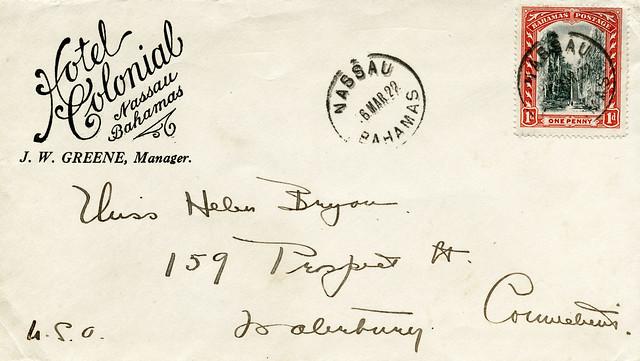 Hotel
Colonial
Nassau
Bahamas
J. W. GREENE, Manager.
NASSAU
6 MAR 22
BAHAMAS
BAHAMAS POSTAGE
NASSAU
1d ONE PENNY 1d
Miss Helen Bryan
159 Prospect St.
Waterbury.
Connecticut.
U.S.A.